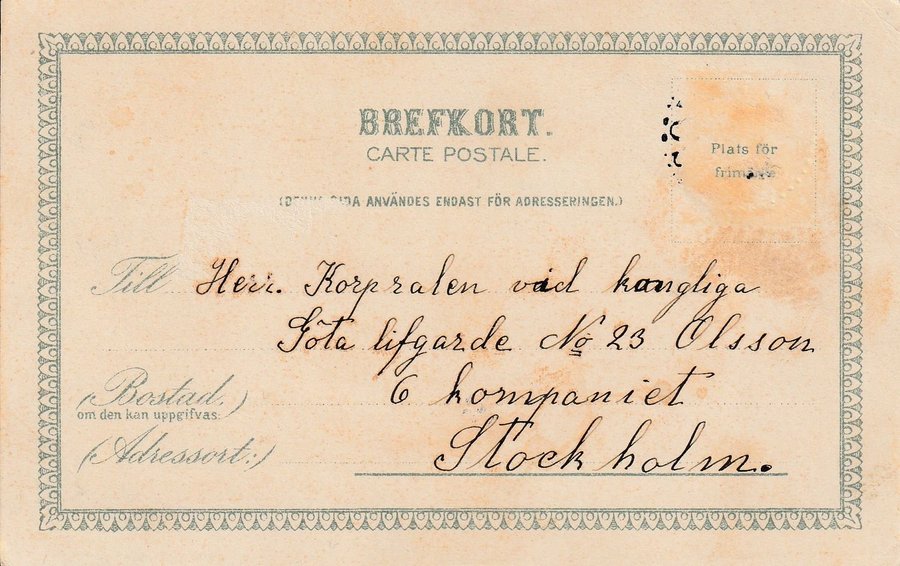 BREFKORT.
CARTE POSTALE.
Plats för
frimärke
(DENNA SIDA ANVÄNDES ENDAST FÖR ADRESSERINGEN.)
Till Herr. Korpralen vid kongliga
Göta lifgarde No 23 Olsson
(Bostad.) 6 kompaniet
om den kan uppgifvas:
(Adressort:) Stockholm.